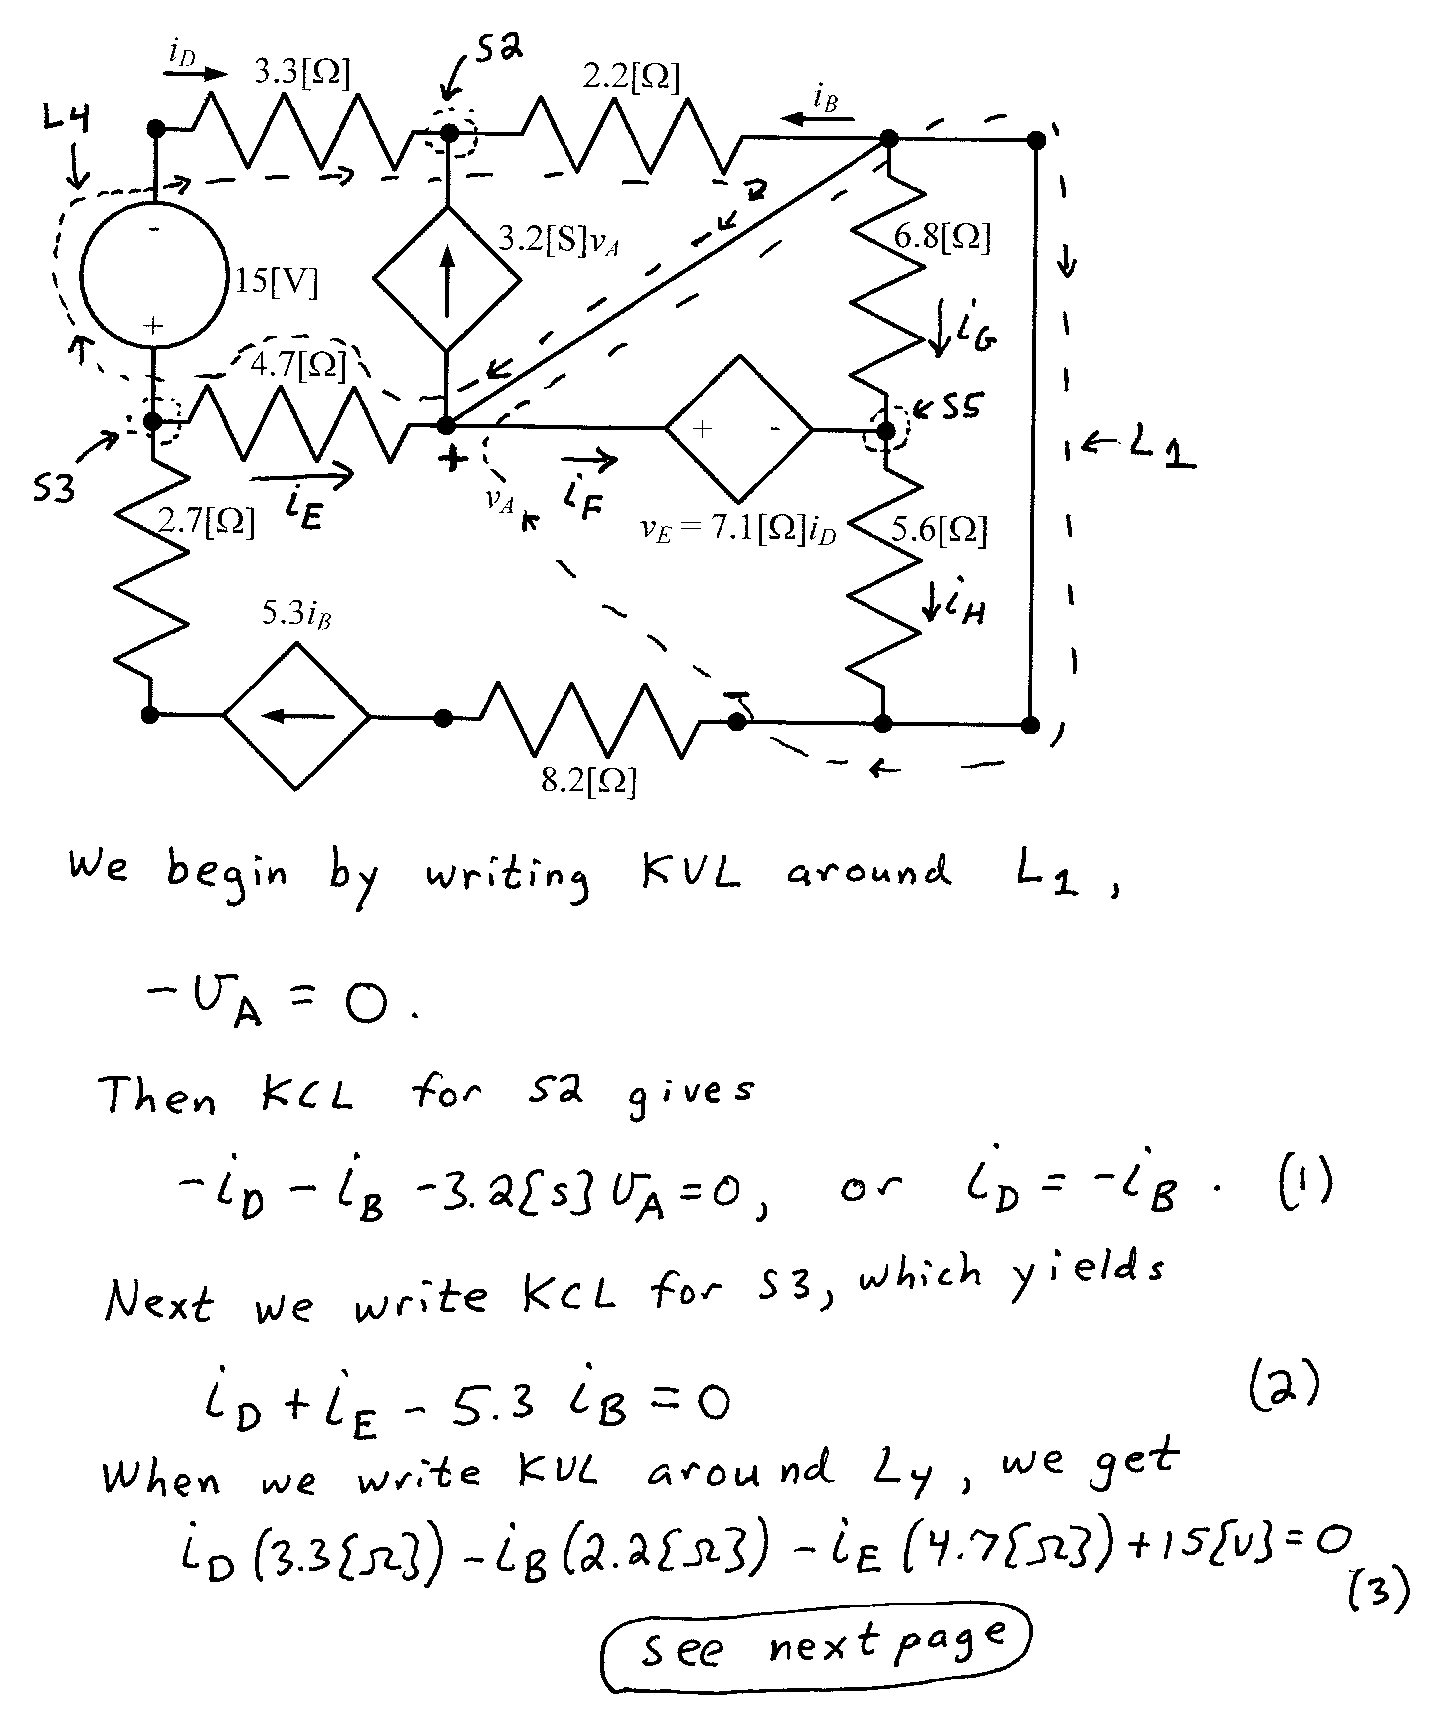 i_D
3.3[Ω]
S2
2.2[Ω]
i_B
L4
-
15[V]
+
3.2[S]v_A
6.8[Ω]
i_G
4.7[Ω]
S3
i_E
+
v_A
i_F
+ -
S5
L1
v_E = 7.1[Ω]i_D
2.7[Ω]
5.6[Ω]
i_H
5.3i_B
-
8.2[Ω]
We begin by writing KVL around L1,
-v_A = 0.
Then KCL for S2 gives
-i_D - i_B -3.2[S]v_A = 0, or i_D = -i_B. (1)
Next we write KCL for S3, which yields
i_D + i_E - 5.3 i_B = 0 (2)
When we write KVL around L4, we get
i_D(3.3[Ω]) - i_B(2.2[Ω]) - i_E(4.7[Ω]) + 15[V] = 0
(3)
see next page